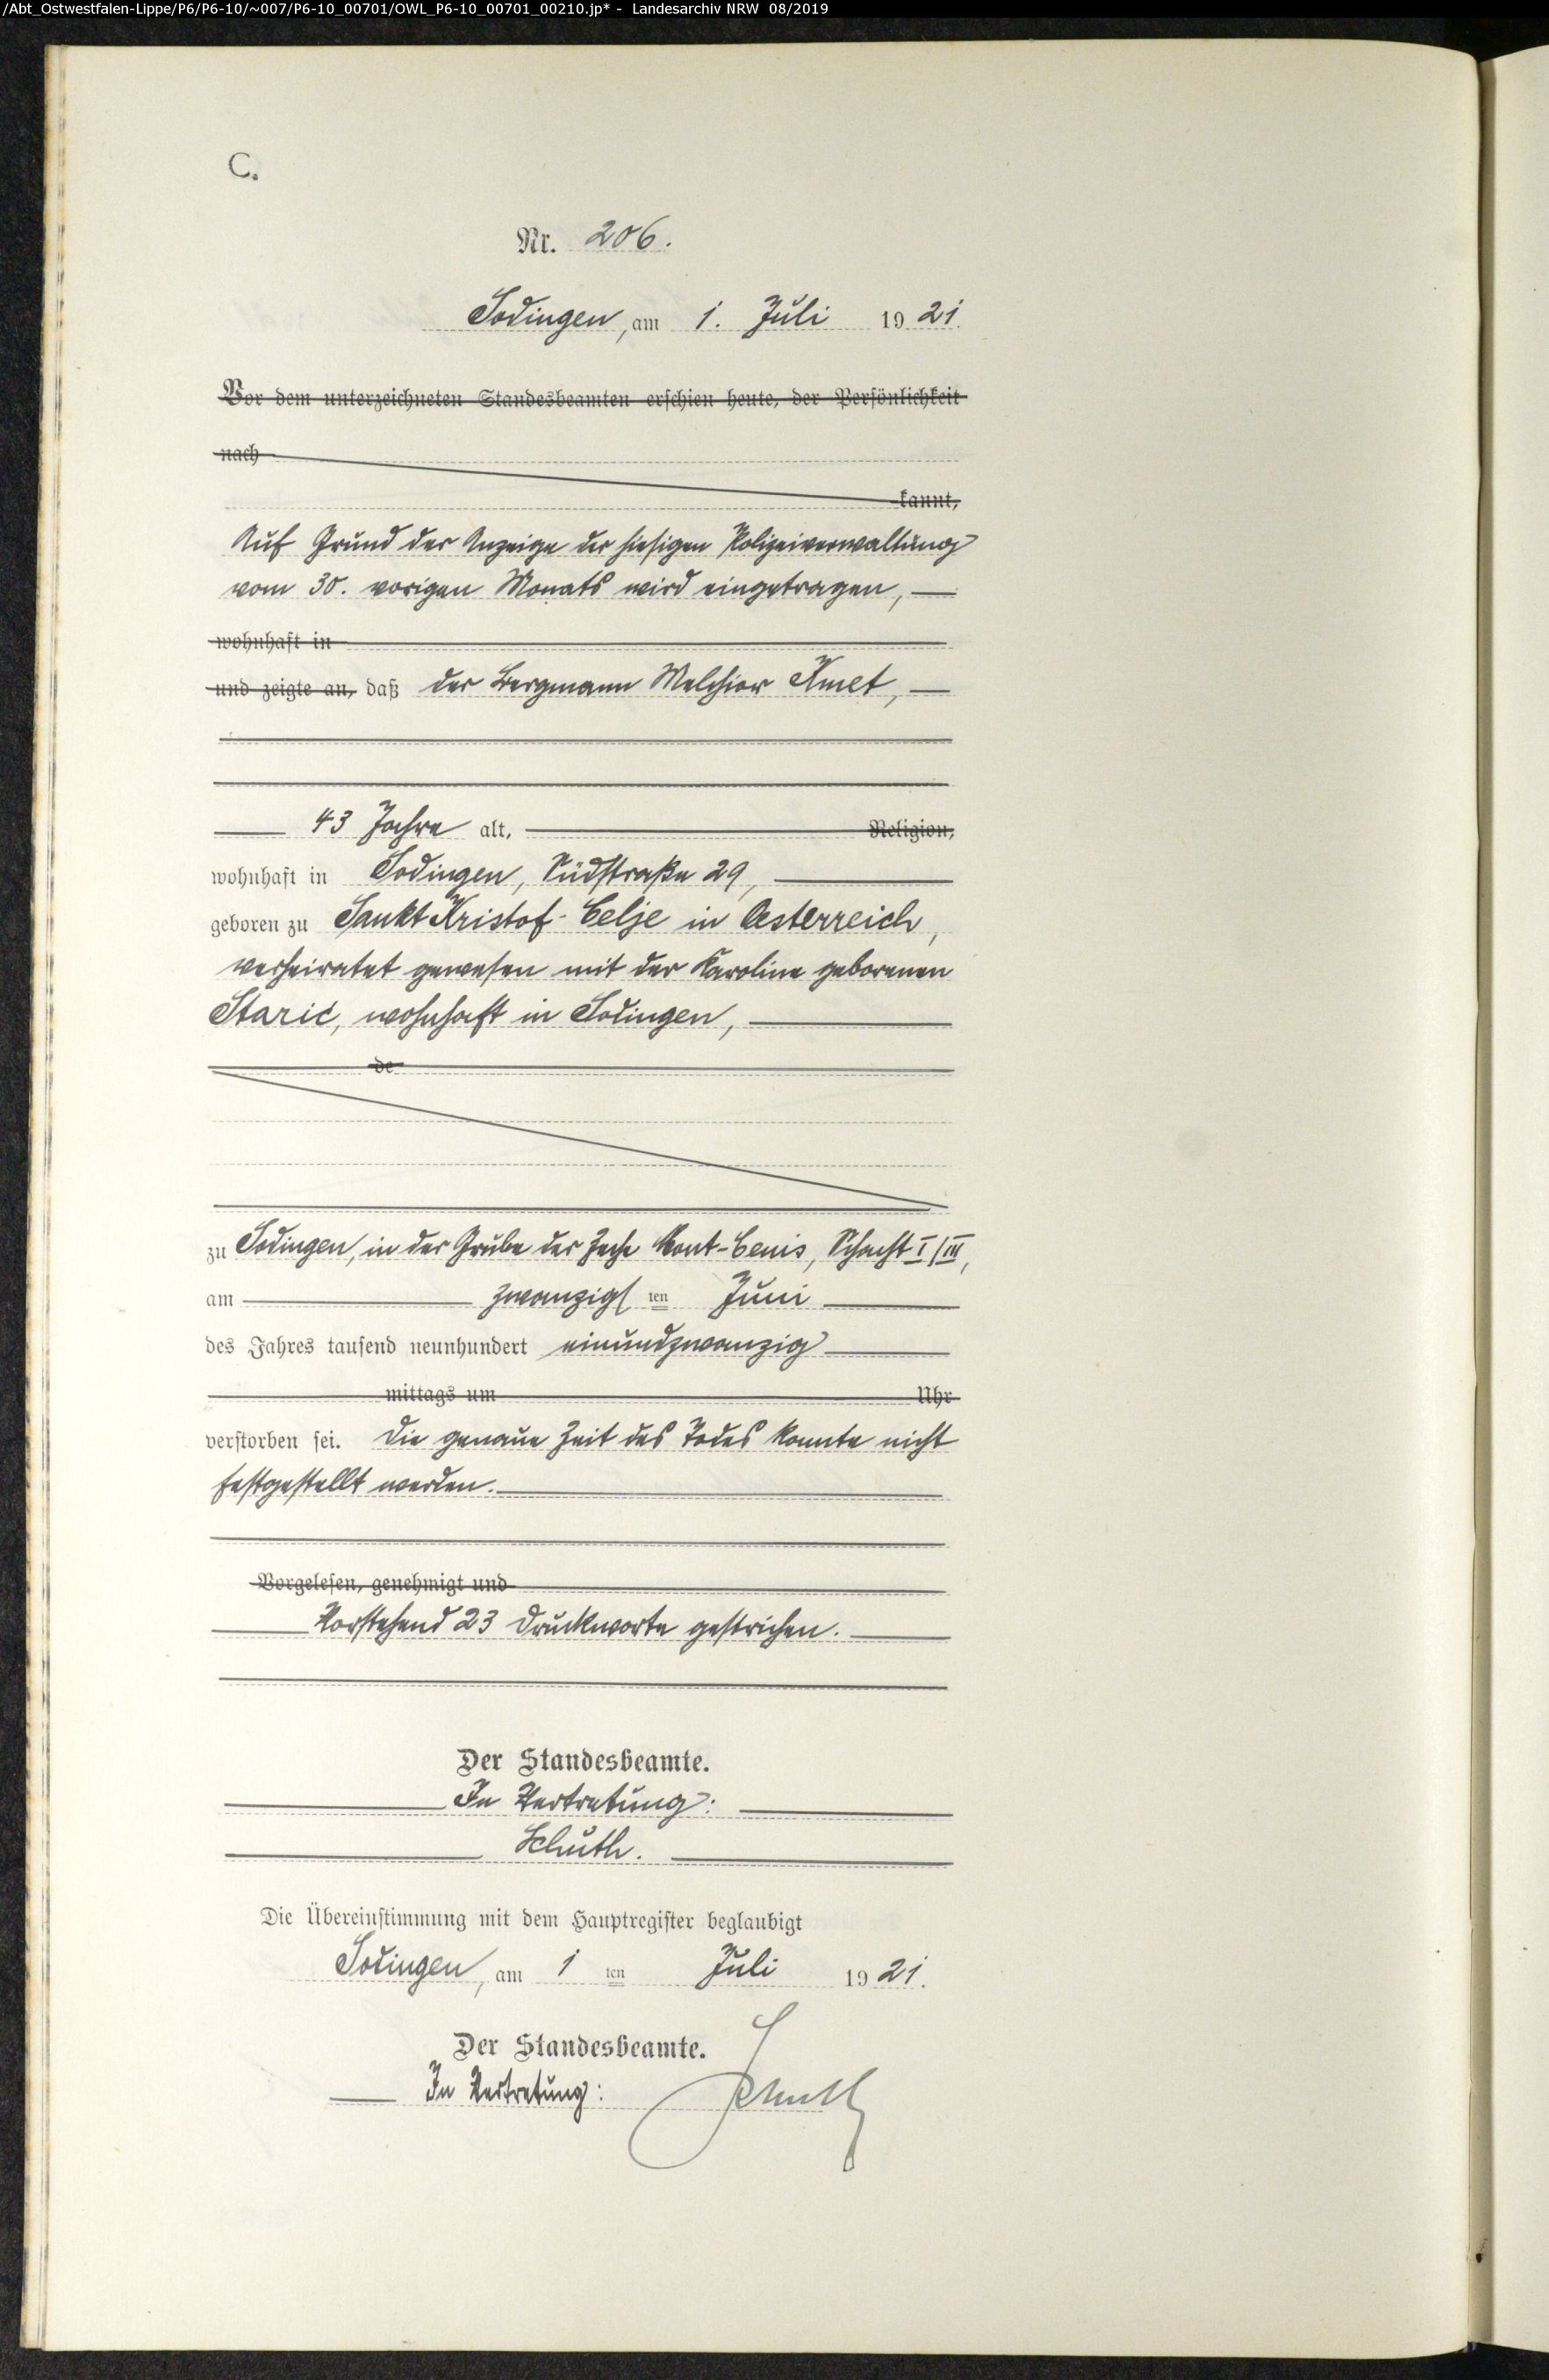 /Abt_Ostwestfalen-Lippe/P6/P6-10/~007/P6-10_00701/OWL_P6-10_00701_00210.jp* - Landesarchiv NRW 08/2019
C.
Nr. 206.
Sodingen, am 1. Juli 1921.
Vor dem unterzeichneten Standesbeamten erschien heute, der Persönlichkeit
nach
kannt,
Auf Grund der Anzeige der hiesigen Polizeiverwaltung
vom 30. vorigen Monats wird eingetragen, —
wohnhaft in
und zeigte an, daß der Bergmann Melchior Kmet, —
43 Jahre alt, Religion,
wohnhaft in Sodingen, Südstraße 29,
geboren zu Sankt Kristof-Celje in Oesterreich,
verheiratet gewesen mit der Karoline geborenen
Staric, wohnhaft in Sodingen,
de
zu Sodingen, in der Grube der Zeche Mont-Cenis, Schacht I/III,
am zwanzigsten Juni
des Jahres tausend neunhundert einundzwanzig
mittags um Uhr
verstorben sei. Die genaue Zeit des Todes konnte nicht
festgestellt werden.
Vorgelesen, genehmigt und
Vorstehend 23 Druckworte gestrichen.
Der Standesbeamte.
In Vertretung:
Schuth.
Die Übereinstimmung mit dem Hauptregister beglaubigt
Sodingen, am 1 ten Juli 1921.
Der Standesbeamte.
In Vertretung: Schuth